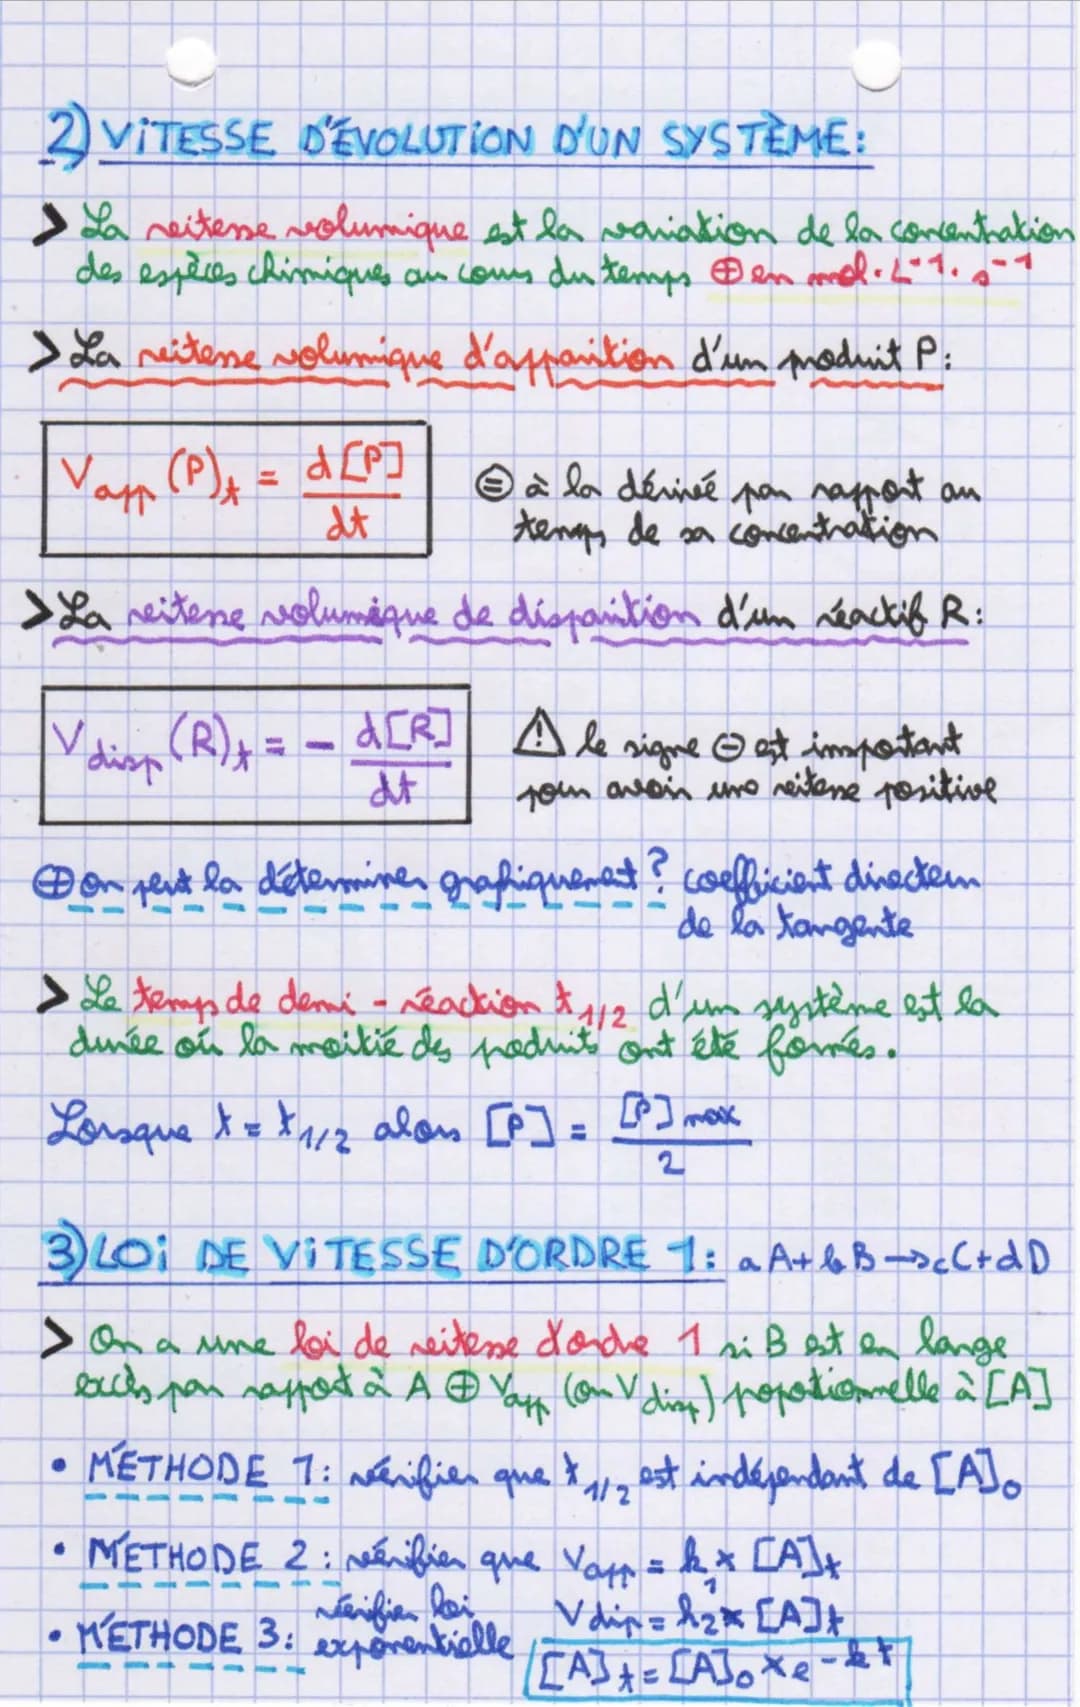 2) VITESSE D'ÉVOLUTION D'UN SYSTÈME:
> La vitesse volumique est la variation de la concentration
des espèces chimiques au cours du temps ⊕ en mol.L⁻¹.s⁻¹
> La vitesse volumique d'apparition d'un produit P:
V app (P)t = d[P]/dt
⊜ à la dérivée par rapport au
temps de sa concentration
> La vitesse volumique de disparition d'un réactif R:
V disp (R)t = - d[R]/dt
⚠ le signe ⊖ est important
pour avoir une vitesse positive
⊕ on peut la déterminer graphiquement? coefficient directeur
de la tangente
> Le temps de demi-réaction t 1/2 d'un système est la
durée où la moitié des produits ont été formés.
Lorsque t = t 1/2 alors [P] = [P]max/2
3) LOI DE VITESSE D'ORDRE 1: aA+bB→cC+dD
> On a une loi de vitesse d'ordre 1 si B est en large
excès par rapport à A ⊕ Vapp (ou Vdisp) popotionnelle à [A]
• MÉTHODE 1: vérifier que t 1/2 est indépendant de [A]₀
• MÉTHODE 2: vérifier que Vapp = k₁ × [A]t
Vdip = k₂ × [A]t
• MÉTHODE 3: vérifier loi
exponentielle
[A]t = [A]₀ × e^-kt